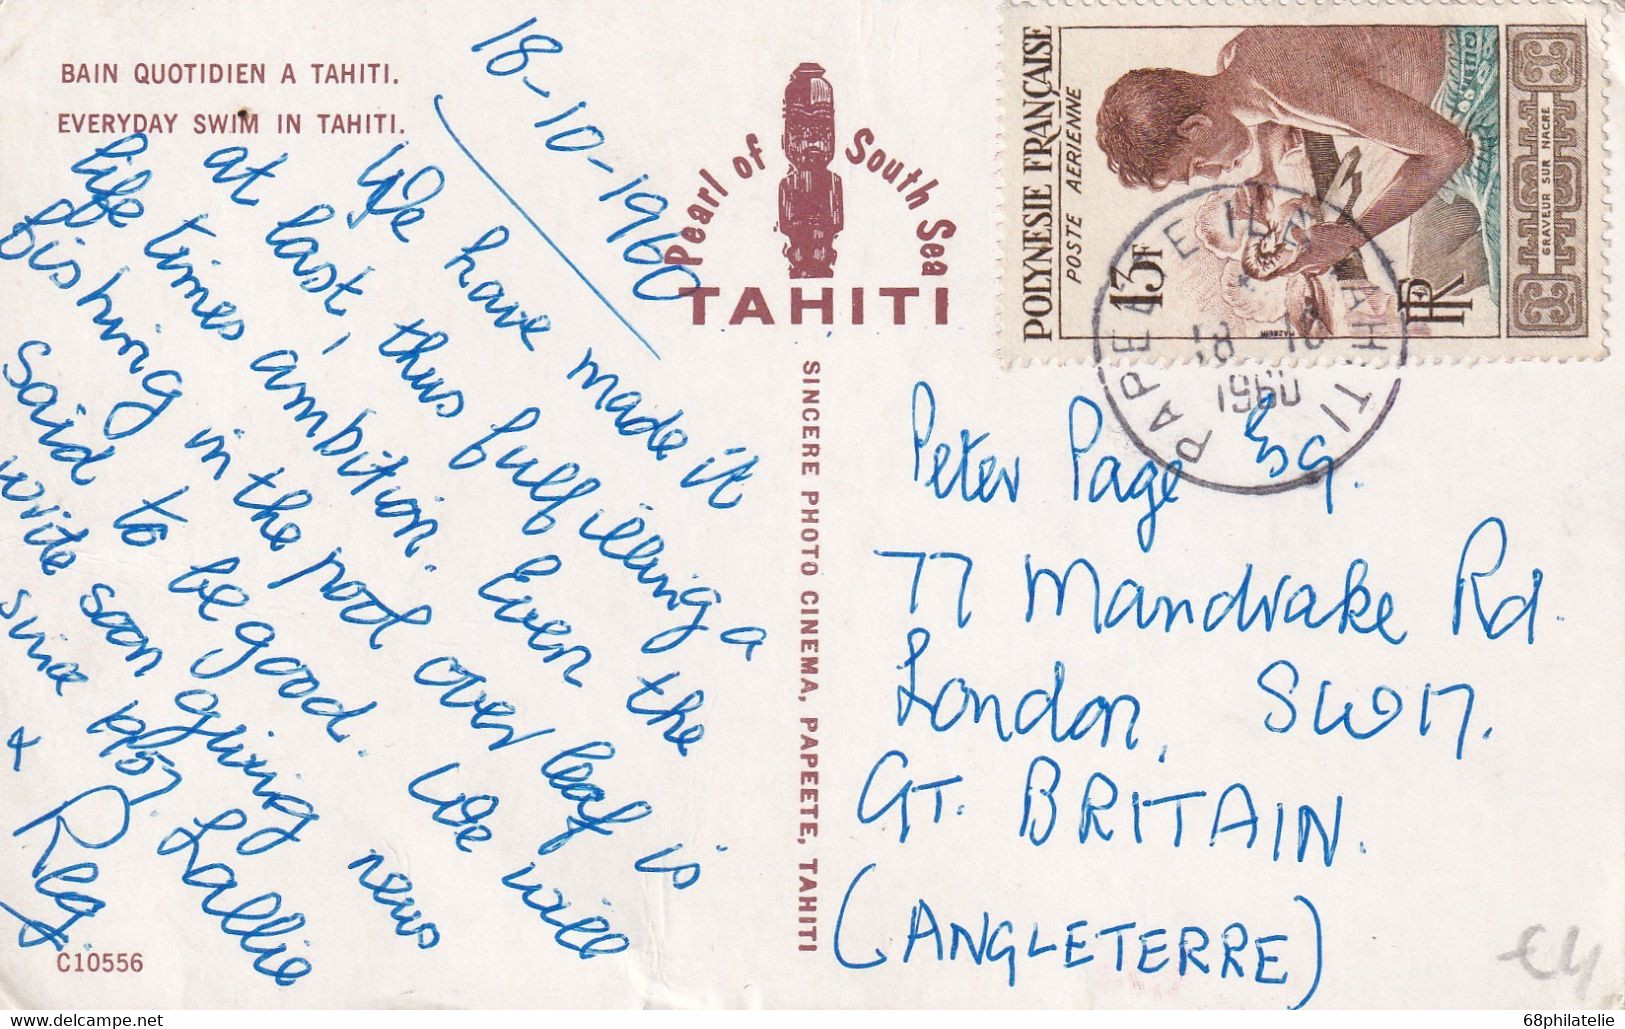 BAIN QUOTIDIEN A TAHITI.
EVERYDAY SWIM IN TAHITI.
18-10-1960
We have made it
at last, thus fulfilling a
life times ambition. Even the
fishing in the pool over leaf is
said to be good. We will
write soon giving news
since
Lallie
+ Reg.
C10556
Pearl of South Sea
TAHITI
SINCERE PHOTO CINEMA, PAPEETE, TAHITI
POLYNESIE FRANÇAISE
POSTE AERIENNE
13F
RF
GRAVEUR SUR NACRE
MAZELIN
PAPEETE ILE TAHITI
Peter Page Esq.
77 Mandrake Rd.
London, SW17.
GT. BRITAIN.
(ANGLETERRE)
€4
68philatelie